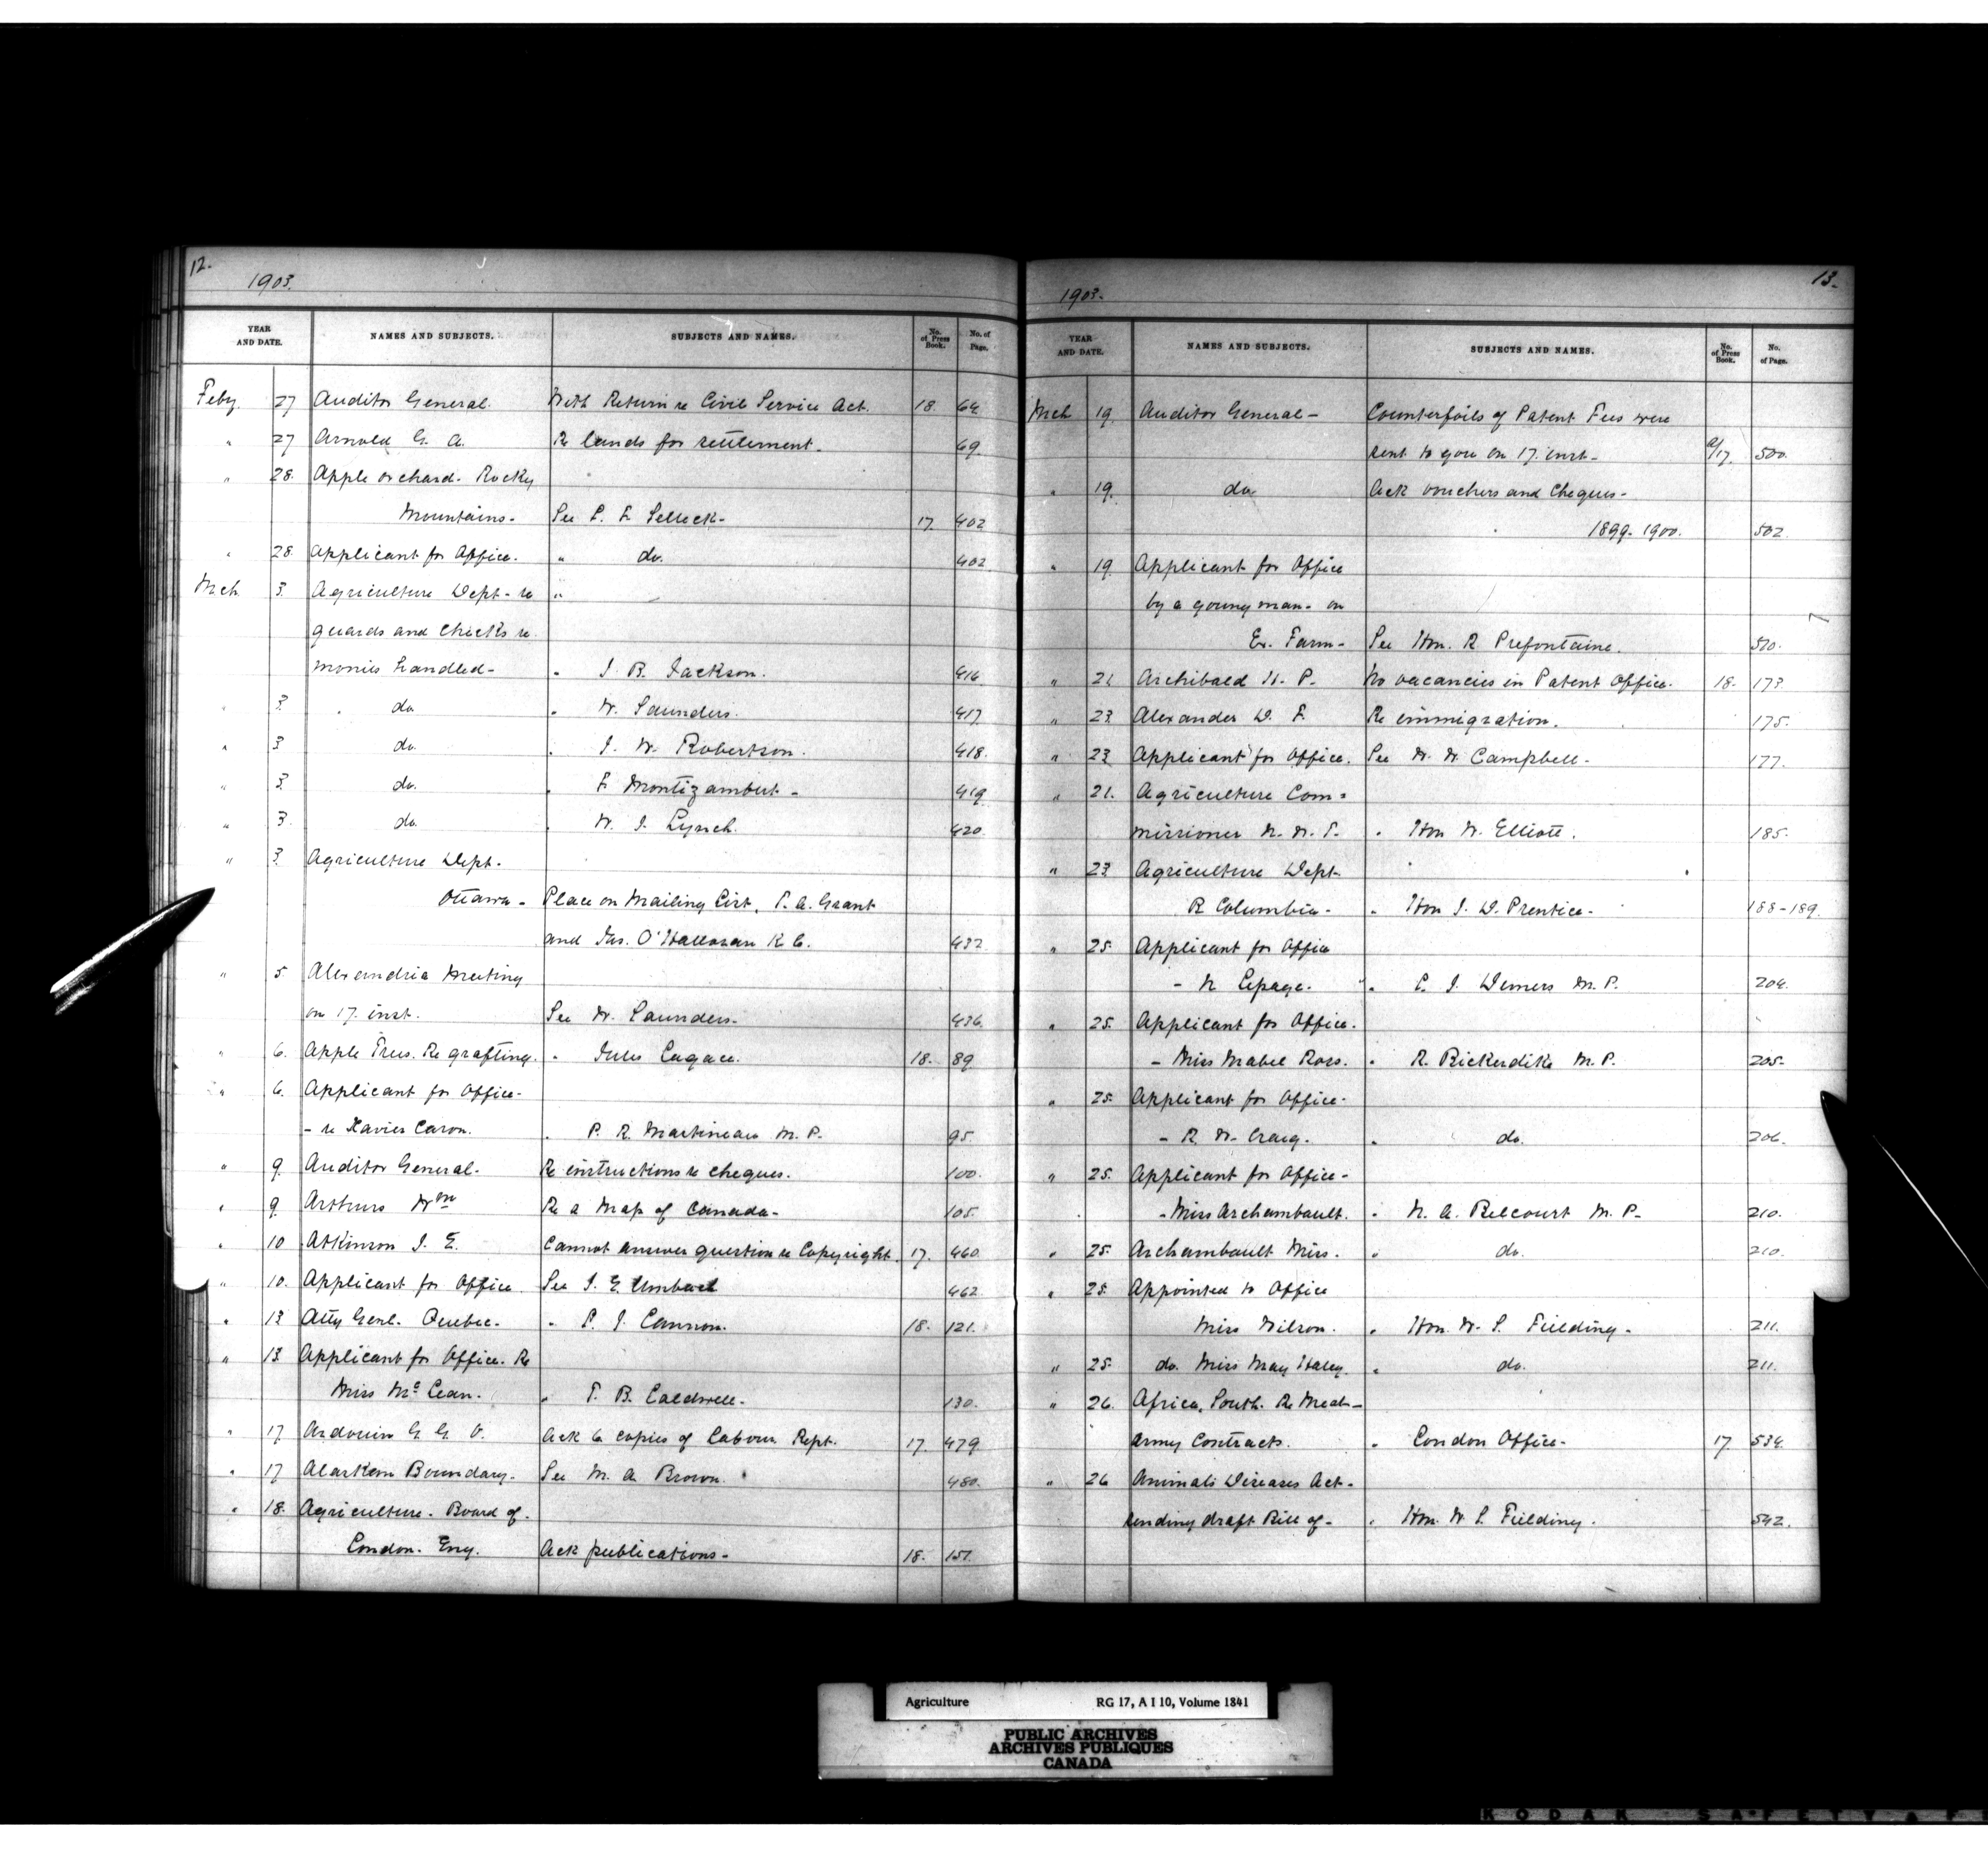 12.
1903.
YEAR AND DATE. NAMES AND SUBJECTS. SUBJECTS AND NAMES. No. of Press Book. No. of Page.
Feby. 27 Auditor General. With Return re Civil Service Act. 18. 64
" 27 Arnold G. A. Re lands for settlement. 69.
" 28. Apple orchard. Rocky
Mountains- See L. F. Selleck- 17. 402
" 28. Applicant for Office. " do. 402
Mch 3. Agriculture Dept- re "
guards and checks re
monies handled- " J. B. Jackson. 416
" 3. do " W. Saunders. 417
" 3 do. " J. W. Robertson. 418.
" 3. do. " F. Montizambert- 419
" 3. do. " W. J. Lynch. 420.
" 3. Agriculture Dept.
Ottawa- Place on Mailing List, T. A. Grant
and Jas. O'Halloran K. C. 432
" 5. Alexandria Meeting
on 17. inst. See W. Saunders- 436.
" 6. Apple Trees. Re grafting. " Jules Lagace. 18. 89.
" 6. Applicant for Office-
- re Xavier Caron. " P. R. Martineau M. P. 95.
" 9. Auditor General- Re instructions re cheques. 100.
" 9. Arthurs Wm Re a Map of Canada- 105.
" 10 Atkinson J. E. Cannot answer question re Copyright. 17. 460.
" 10. Applicant for Office. See J. E. Umbach 462.
" 13 Atty Genl. Quebec. " L. J. Cannon. 18. 121.
" 13. Applicant for Office. Re
Miss McLean. " T. B. Caldwell- 130.
" 17 Ardouin G. G. O. Ack 6 copies of Labour Rept. 17. 479.
" 17 Alaskan Boundary. See M. A. Brown. 480.
" 18. Agriculture. Board of.
London. Eng. Ack publications- 18. 151.
13.
1903.
YEAR AND DATE. NAMES AND SUBJECTS. SUBJECTS AND NAMES. No. of Press Book. No. of Page.
Mch 19. Auditor General- Counterfoils of Patent Fees were
sent to you on 17. inst- 17. 500.
" 19. do Ack vouchers and Cheques-
1899-1900. 502.
" 19. Applicant for Office
by a young man- on
Ex. Farm- See Hon. R Prefontaine. 510.
" 21 Archibald H. P. No vacancies in Patent Office. 18. 173.
" 23. Alexander D. F. Re immigration. 175.
" 23. Applicant for Office. See W. W. Campbell- 177.
" 21. Agriculture Com=
missioner N. W. T. " Hon W. Elliott. 185.
" 23. Agriculture Dept-
B Columbia- " Hon J. D. Prentice- 188-189.
" 25. Applicant for Office
- N Lepage. " L. J. Demers M. P. 204.
" 25. Applicant for Office.
- Miss Mabel Ross. " R. Bickerdike M. P. 205-
" 25. Applicant for Office-
- R. W. Craig. " do. 206.
" 25. Applicant for Office-
- Miss Archambault. " N. A. Belcourt M. P- 210.
" 25. Archambault Miss. " do. 210.
" 25. Appointed to Office
Miss Wilson. " Hon. W. S. Fielding- 211.
" 25. do. Miss May Haley. " do. 211.
" 26. Africa, South. Re Meat-
Army Contracts. " London Office- 17 534.
" 26 Animals Diseases Act-
sending draft Bill of- " Hon. W. S. Fielding. 542.
Agriculture RG 17, A I 10, Volume 1841
PUBLIC ARCHIVES
ARCHIVES PUBLIQUES
CANADA
KODAK SAFETY